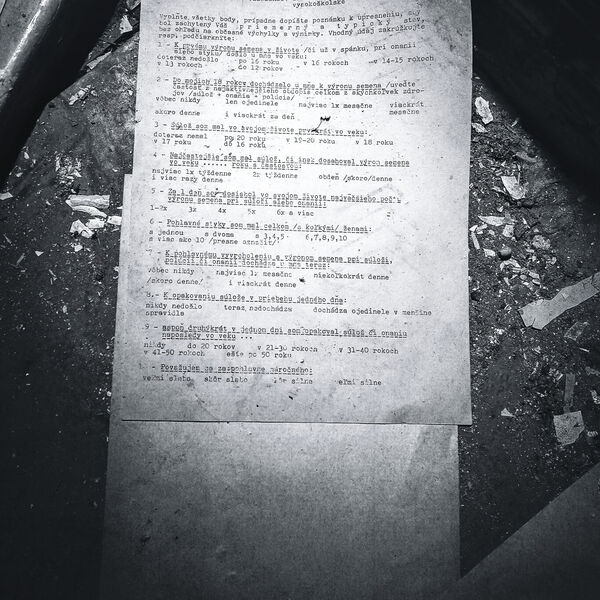 vysokoškolské
Vyplňte všetky body, prípadne dopíšte poznámku k upresneniu, aby
bol zachytený Váš p r i e m e r n ý a t y p i c k ý stav,
bez ohľadu na občasné výchylky a výnimky. Vhodný údaj zakrúžkujte
resp. podčiarknite:
1 - K prvému výronu semena v živote /či už v spánku, pri onanii
alebo styku/ došlo u mňa vo veku:
doteraz nedošlo po 16 roku v 16 rokoch v 14-15 rokoch
v 13 rokoch do 12 rokov
2 - Do mojich 18 rokov dochádzalo u mňa k výronu semena /uveďte
častosť z najaktívnejšieho obdobia celkom z akýchkoľvek zdro-
jov /súlož + onania + polúcia/
vôbec nikdy len ojedinele najviac 1x mesačne viackrát
mesačne
skoro denne i viackrát za deň
3 - Súlož som mal vo svojom živote prvýkrát vo veku:
doteraz nemal po 20 roku v 19-20 roku v 18 roku
v 17 roku do 16 roku
4 - Najčastejšie som mal súlož, či ináč dosahoval výron semena
vo veku ...... roku s častosťou:
najviac 1x týždenne 2x týždenne obdeň /skoro/denne
i viac razy denne
5 - Za 1 deň som dosiahol vo svojom živote najväčšieho počtu
výronu semena pri súloži alebo onanii:
1-2x 3x 4x 5x 6x a viac
6 - Pohlavné styky som mal celkom /o koľkými/ ženami:
s jednou s dvoma s 3,4,5 6,7,8,9,10
s viac ako 10 /presne označiť/
7 - K pohlavnému vyvrcholeniu a výronom semena pri súloži,
polúcii či onanii dochádza u mňa teraz:
vôbec nikdy najviac 1x mesačne niekoľkokrát denne
/skoro denne/ i viackrát denne
8.- K opakovaniu súlože v priebehu jedného dňa:
nikdy nedošlo teraz nedochádza dochádza ojedinele v menšine
spravidla
9 - aspoň druhýkrát v jednom dni som opakoval súlož či onaniu
naposledy vo veku ...
nikdy do 20 rokov v 21-30 rokoch v 31-40 rokoch
v 41-50 rokoch ešte po 50 roku
Považujem za pohlavne náročného:
veľmi slabo skôr slabo skôr silne veľmi silne